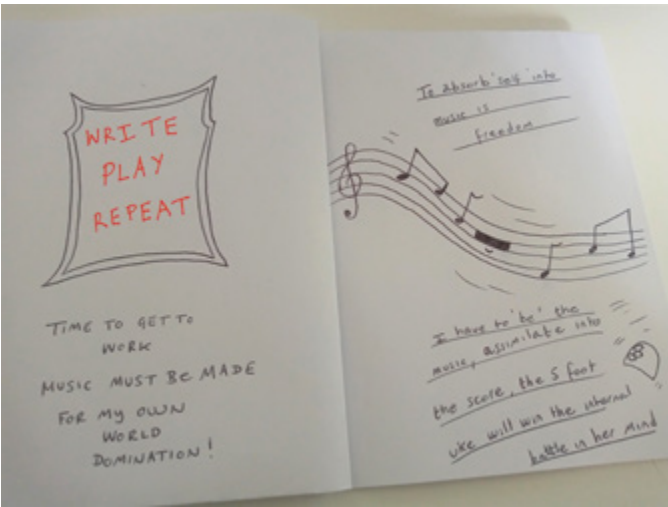 WRITE
PLAY
REPEAT
TIME TO GET TO
WORK
MUSIC MUST BE MADE
FOR MY OWN
WORLD
DOMINATION!
To absorb 'self' into
music is
freedom
I have to 'be' the
music, assimilate into
the score, the 5 foot
uke will win the internal
battle in her mind